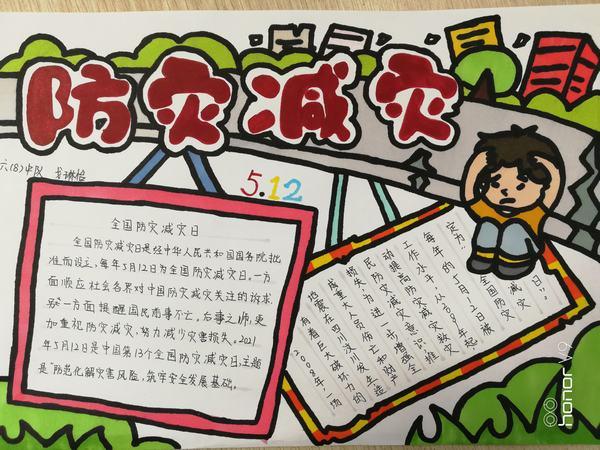 防灾减灾
六(8)中队
5.12
全国防灾减灾日
全国防灾减灾日是经中华人民共和国国务院批
准而设立,每年5月12日为全国防灾减灾日。一方
面顺应社会各界对中国防灾减灾关注的诉求,
另一方面提醒国民前事不忘、后事之师,更
加重视防灾减灾,努力减少灾害损失。2021
年5月12日是中国第13个全国防灾减灾日,主题
是“防范化解灾害风险,筑牢安全发展基础。
一场
有着巨大破坏力的
地震在四川汶川发生,造
成重大人员伤亡和财产
损失。为进一步增强全
民防灾减灾意识,推
动提高防灾减灾救灾
工作水平,从
每年的5月12日被
定为“全国防灾减灾日”。
honor V9